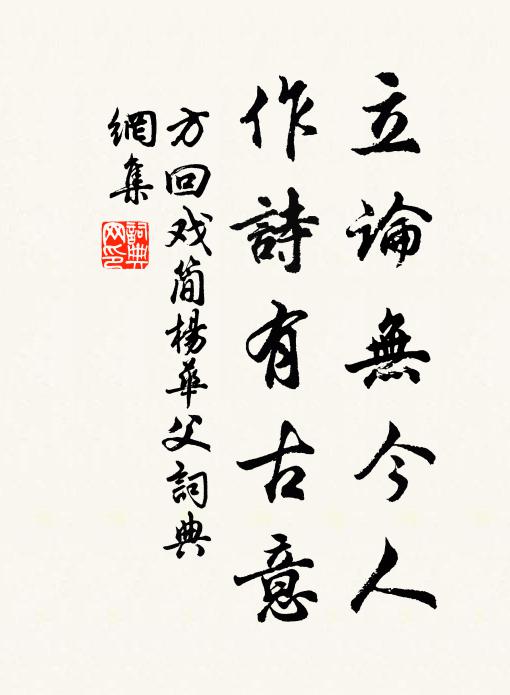 立論無今人
作詩有古意
方回戏简楊華父詞典
網集
詞典网印